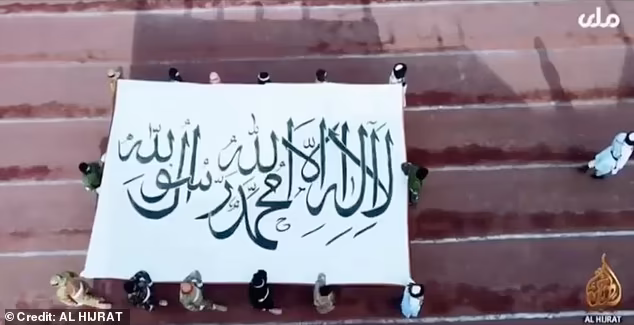 ملي
لا إله إلا الله محمد رسول الله
© Credit: AL HIJRAT
AL HIJRAT